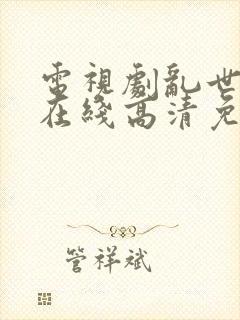 電視劇亂世
在綫高清免
管祥斌